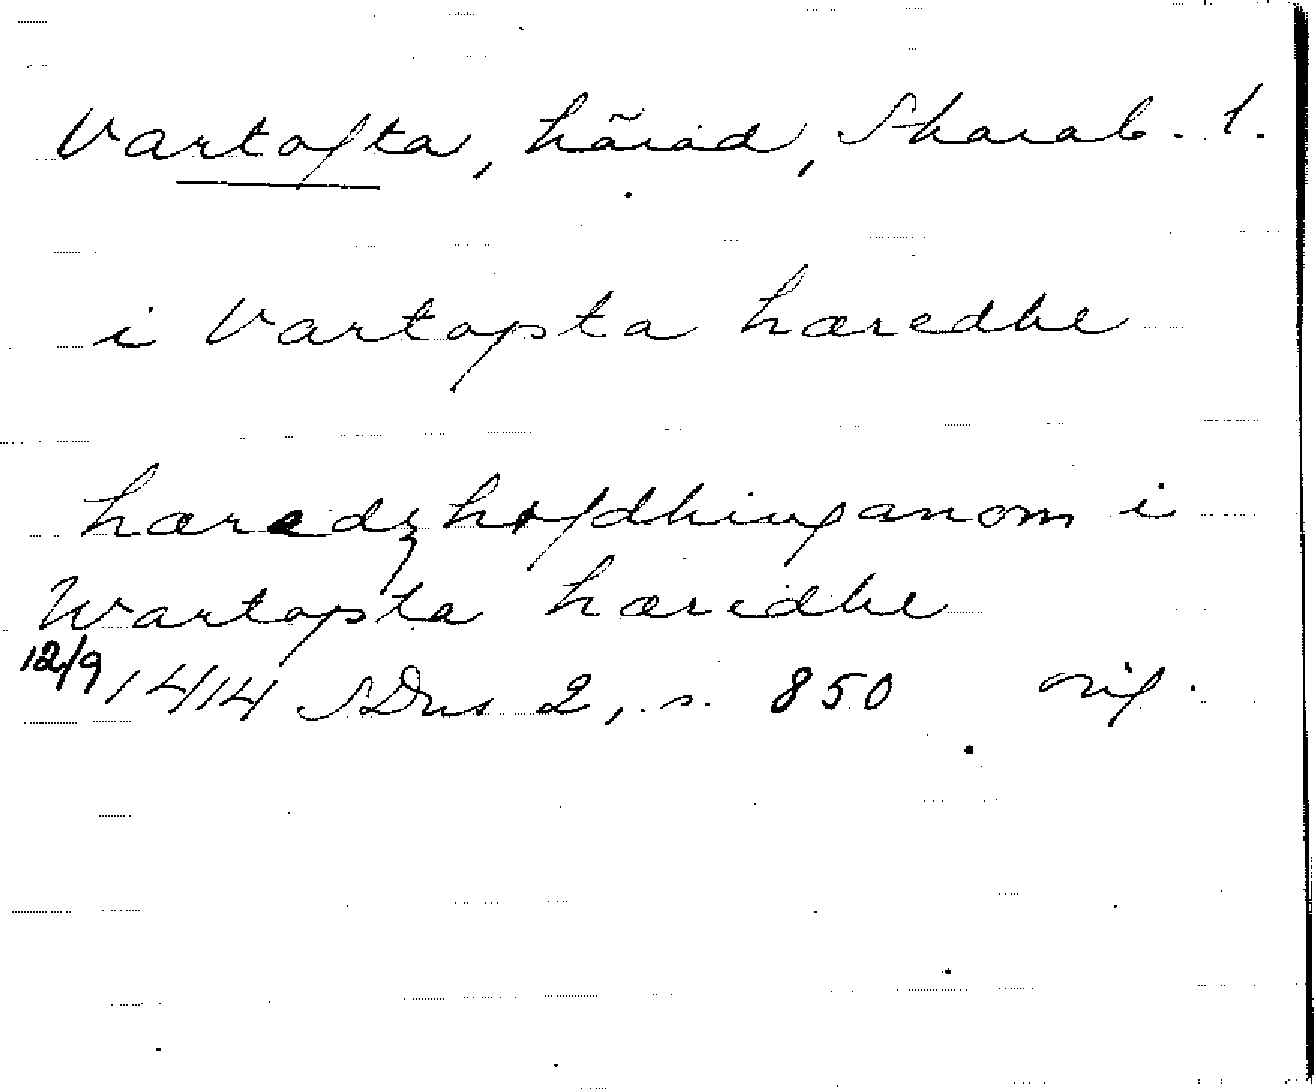 Vartofta, härad, Skarab. l.
i Vartopta hæredhe
hæredz hofdhinganom i
Wartopta hæridhe
12/9 1414 SDns 2, s. 850 orig.